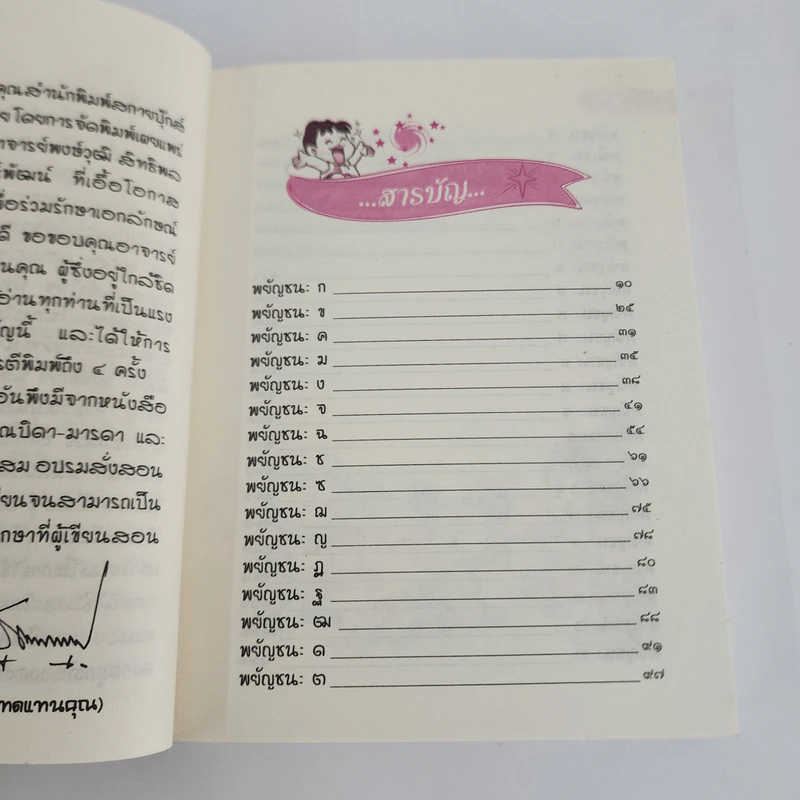 คุณสำนักพิมพ์สกายบุ๊กส์
โดยการจัดพิมพ์เผยแพร่
อาจารย์พงษ์วุฒิ สิทธิพล
พัฒน์ ที่เอื้อโอกาส
ร่วมรักษาเอกลักษณ์
ดี ขอขอบคุณอาจารย์
ผู้ซึ่งอยู่ใกล้ชิด
อ่านทุกท่านที่เป็นแรง
และได้ให้การ
ตีพิมพ์ถึง ๔ ครั้ง
อันพึงมีจากหนังสือ
บิดา-มารดา และ
อบรมสั่งสอน
จนสามารถเป็น
ที่ผู้เขียนสอน
ทดแทนคุณ)
...สารบัญ...
พยัญชนะ ก ๑๐
พยัญชนะ ข ๒๕
พยัญชนะ ค ๓๑
พยัญชนะ ฆ ๓๕
พยัญชนะ ง ๓๘
พยัญชนะ จ ๔๑
พยัญชนะ ฉ ๕๔
พยัญชนะ ช ๖๑
พยัญชนะ ซ ๖๖
พยัญชนะ ฌ ๗๕
พยัญชนะ ญ ๗๘
พยัญชนะ ฎ ๘๐
พยัญชนะ ฐ ๘๓
พยัญชนะ ฒ ๘๘
พยัญชนะ ด ๙๑
พยัญชนะ ต ๙๗